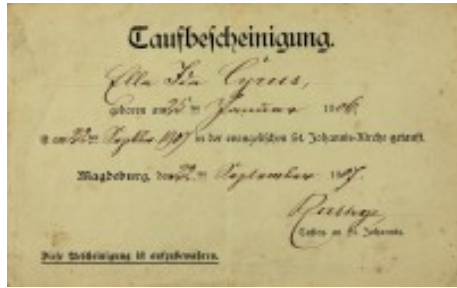 Taufbescheinigung.
Ella Ida Cyrus,
geboren am 25ten Januar 1906.
ist am 22ten Septbr. 1907 in der evangelischen St. Johannis-Kirche getauft.
Magdeburg, den 22ten September 1907.
Küster an St. Johannis.
Diese Bescheinigung ist aufzubewahren.